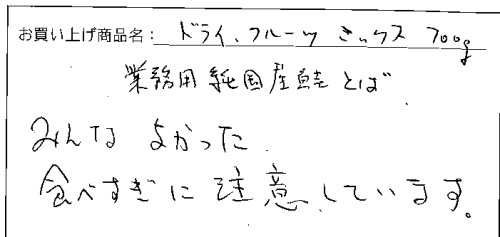 お買い上げ商品名：ドライ、フルーツ ミックス 700g
業務用 純国産鮭とば
みんな よかった
食べすぎに注意しています。